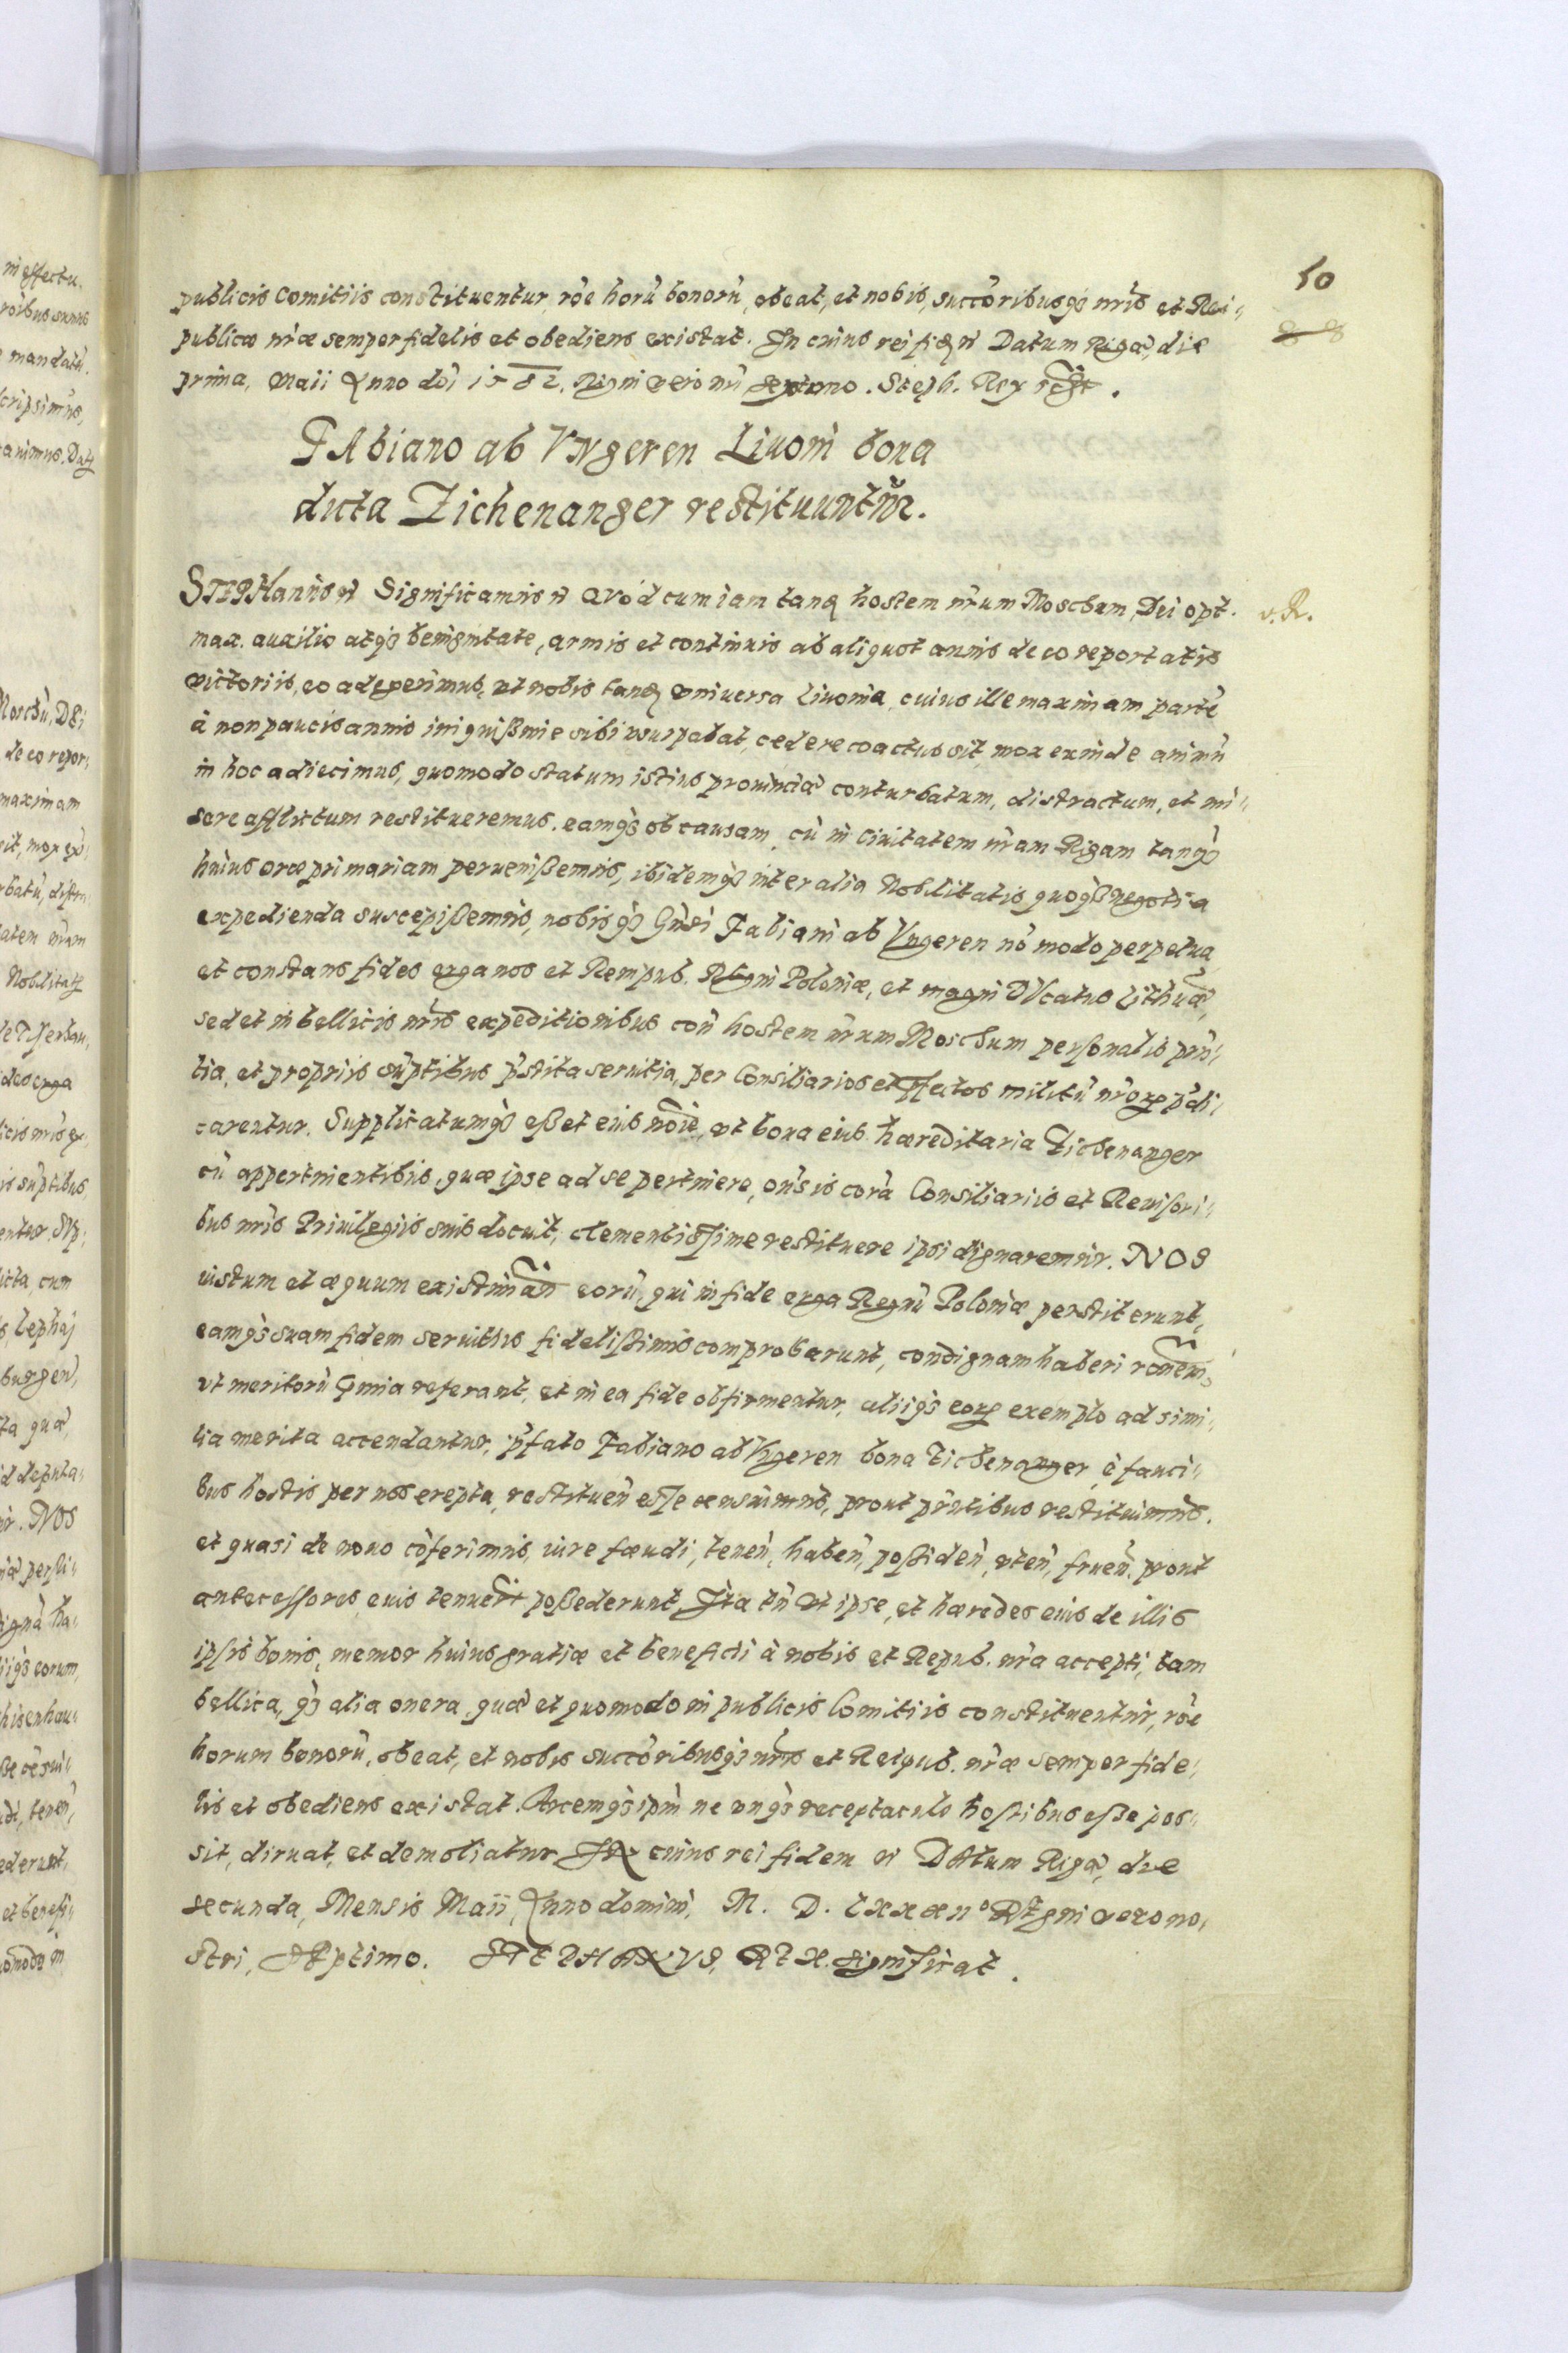 50
publicis Comitiis constituentur, rõe horũ bonorũ, obeat, et nobis, succõribusq3 nr̃is et Rei-
publicæ nr̃æ semper fidelis et obediens existat. In cuius rei fid. Datum Rigæ, die
prima, Maii Anno dñi 1582. Regni vero nr̃i septimo. Steph. Rex sgt.
FAbiano ab VNgeren Livoni bona
dicta Zichenanger restituuntur.
STEPHanus Significamus Quod cum iam tandẽ hostem nr̃um Moschum, Dei opt.
v. R.
max. auxilio atq3 benignitate, armis et continuis ab aliquot annis de eo reportatis
victoriis, eo adegerimus, ut nobis tandẽ vniversa Livonia, cuius ille maximam partẽ
à non paucis annis iniquißime sibi vsurpabat, cedere coactus sit, mox exinde animũ
in hoc adiecimus, quomodo statum istius provinciæ conturbatum, distractum, et mi-
sere afflictum restitueremus. eamq3 ob causam, cũ in Civitatem nr̃am Rigam tanq3
huius oræ primariam pervenißemus, ibidemq3 inter alia Nobilitatis quoq3 negotia
expedienda suscepißemus, nobisq3 Gñsi Fabiani ab Vngeren nõ modo perpetua
et constans fides erga nos et Rempub. Regni Poloniæ, et magni DVcatus Lithuæ,
sed et in bellicis nr̃is expeditionibus con̄ hostem nr̃um Moschum personalis prñ-
tia, et propriis sũptibus p̃stita servitia, per Consiliarios et p̃fectos militũ nr̃or p̃di-
carentur. Supplicatumq3 eßet eius noĩe, vt bona eius hæreditaria Zichenanger
cũ appertinentibus, quæ ipse ad se pertinere, oñsis corã Consiliariis et Revisori-
bus nr̃is Privilegiis suis docuit, clementissime restituere ipsi dignaremur. NOS
iustum et æquum existimañ eorũ, qui in fide erga Regnũ Poloniæ perstiterunt,
eamq3 suam fidem servitiis fidelißimis comprobarunt, condignam haberi rõnem,
vt meritorũ p̃mia referant, et in ea fide obfirmentur, aliiq3 eor exemplo ad simi-
lia merita accendantur, p̃fato Fabiano ab Vngeren bona Zichenanger, è fauci-
bus hostis per nos erepta, restitueñ esse censuimus, prout pñtibus restituimus.
et quasi de novo cõferimus, iure fæudi, teneñ, habeñ, poßideñ, vteñ, frueñ, prout
antecessores, eius tenuert poßederunt. Ita tñ vt ipse, et hæredes eius de illis
ipsis bonis, memor huius gratiæ et beneficii à nobis et Repub. nr̃a accepti, tam
bellica, q3 alia onera, quæ et quomodo in publicis Comitiis constituentur, rõe
horum bonorũ, obeat, et nobis succõribusq3 nr̃is et Reipub. nr̃æ semper fide-
lis et obediens existat. Arcemq3 ipm̃ ne vnq3 receptaculo hostibus eße pos-
sit, diruat, et demoliatur. IN cuius rei fidem DAtum Rigæ, die
secunda, Mensis Maii, Anno domini, M. D. LXXXIIº REgni vero no-
stri, SEptimo. STEPHANVS, REX. significat.